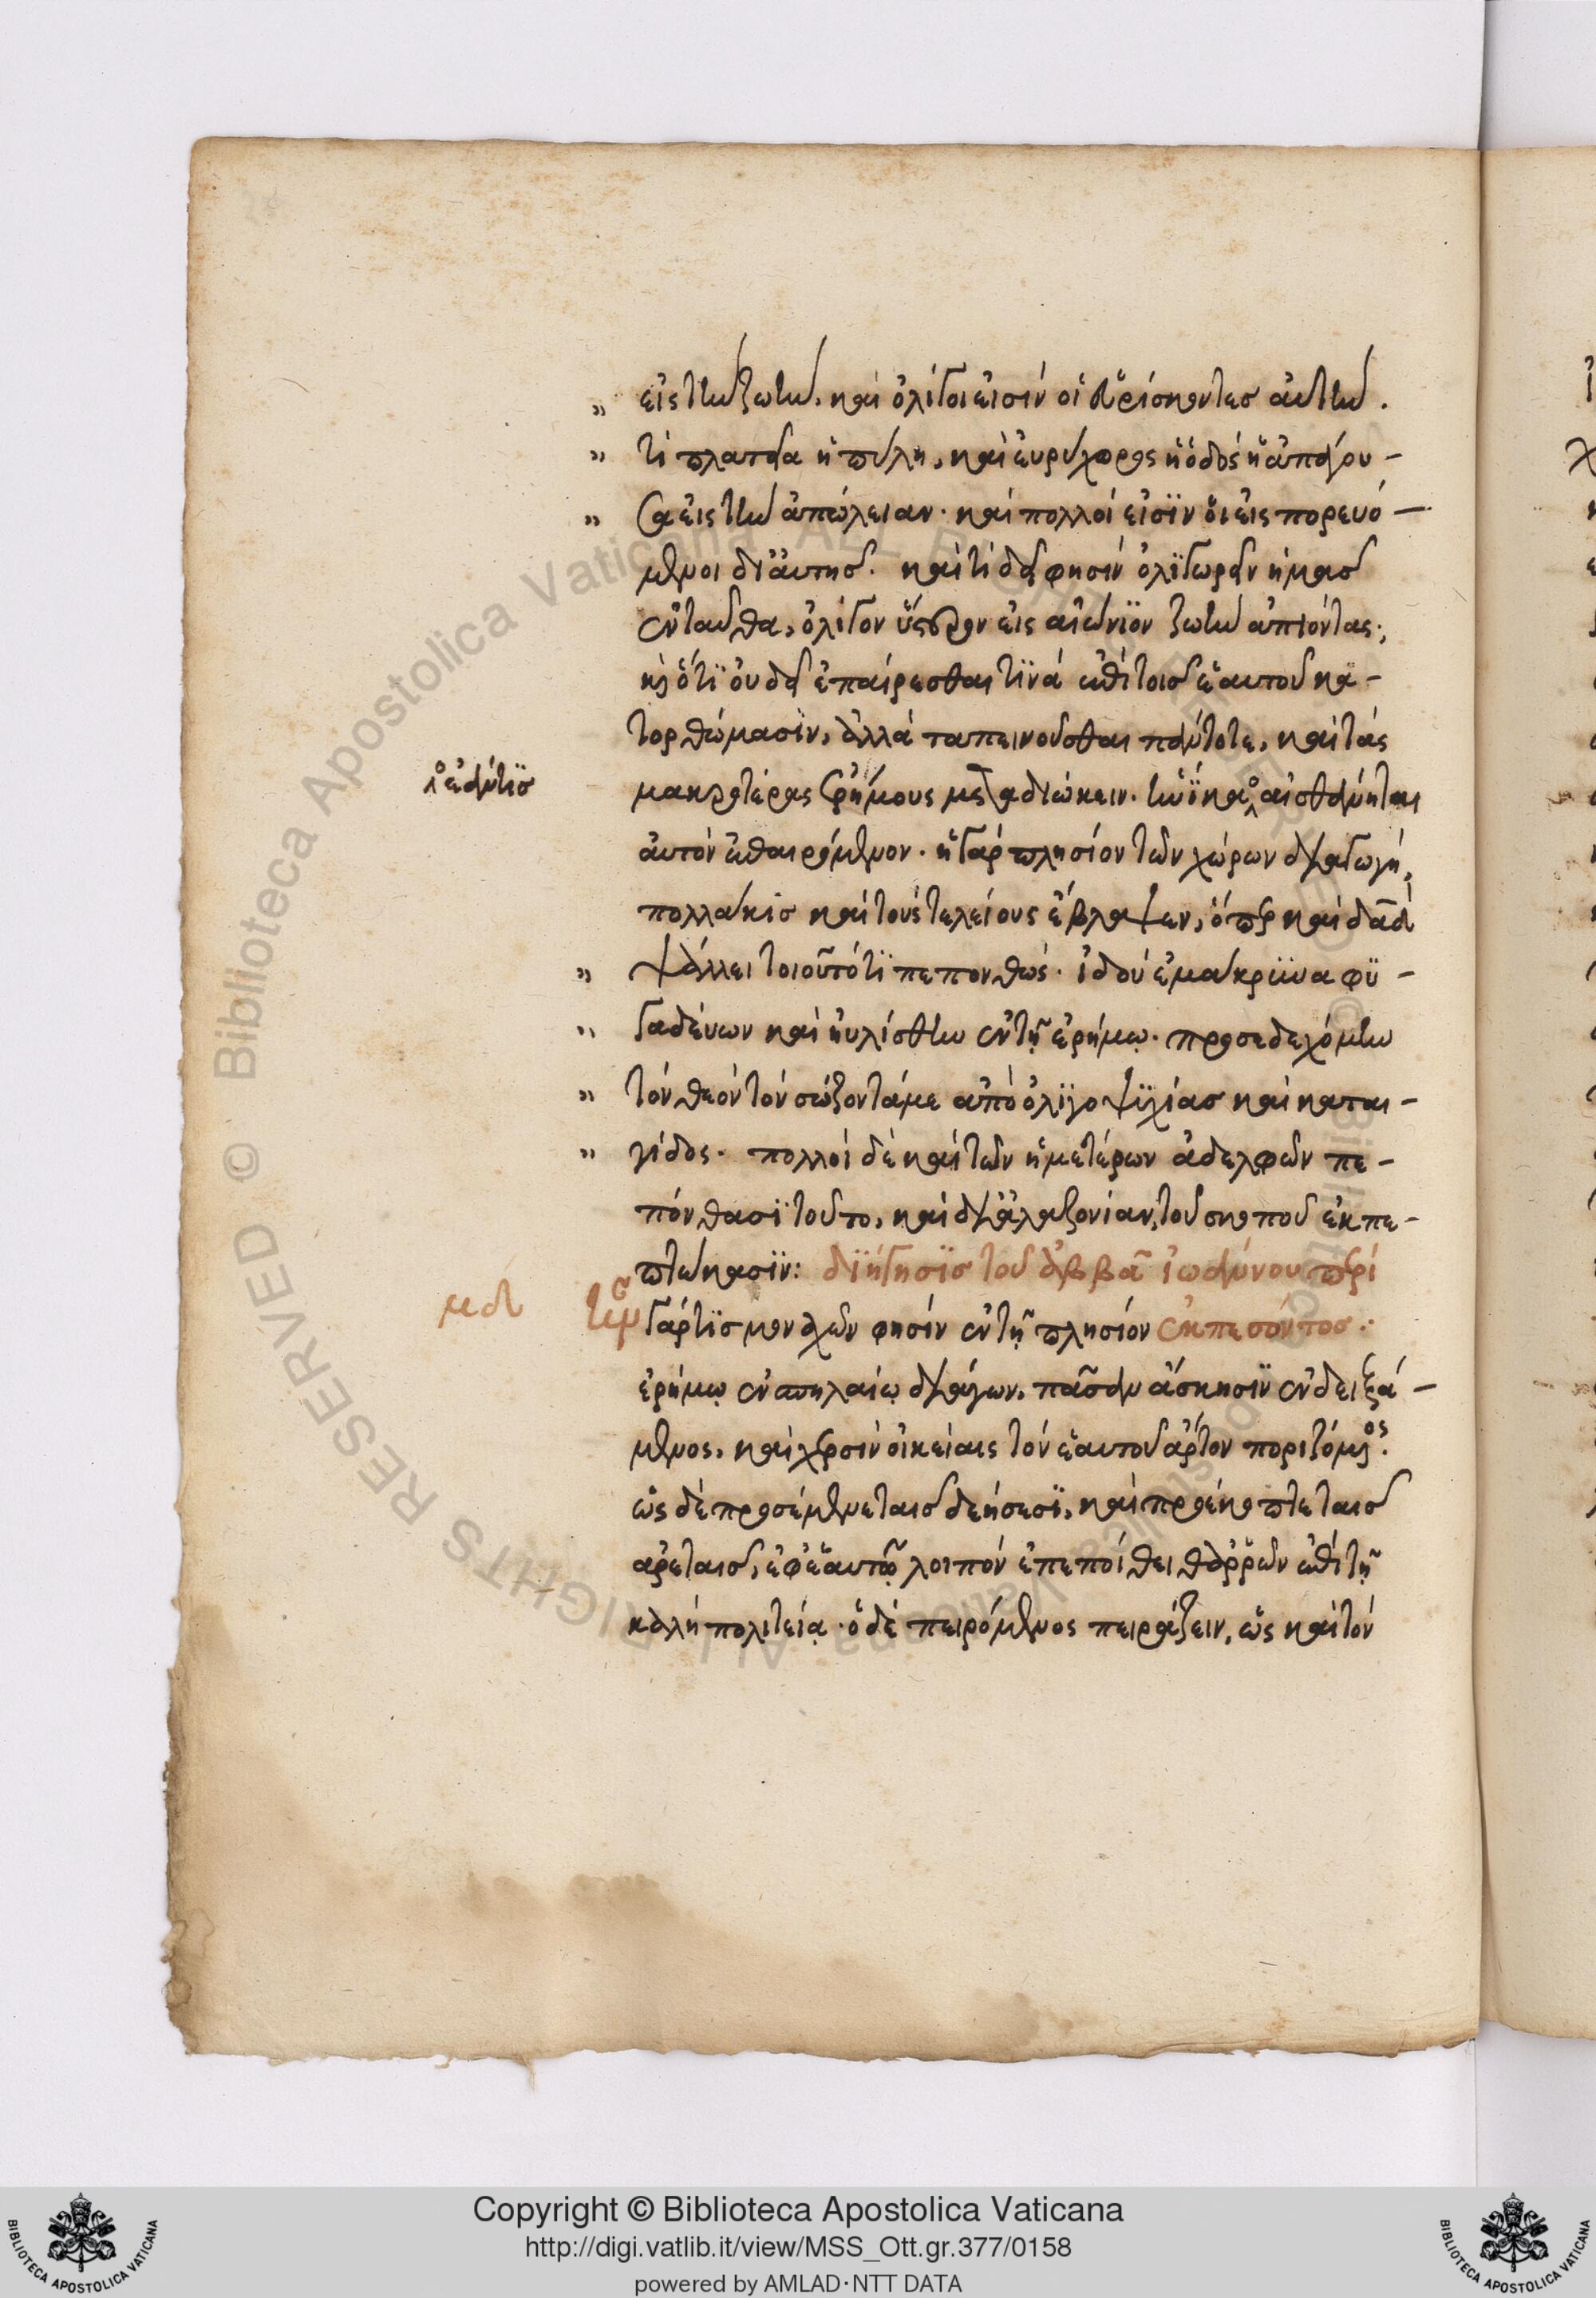 εἰς τὴν ζωὴν. καὶ ὀλίγοι εἰσὶν οἱ εὑρίσκοντες αὐτὴν.
τὶ πλατεῖα ἡ πύλη, καὶ εὐρύχορος ἡ ὁδὸς ἡ ἀπάγου-
σα εἰς τὴν ἀπώλειαν. καὶ πολλοί εἰσϊν ὅι εἰς πορευό-
μενοι δι᾽ ἀυτῆς. καὶ τί δεῖ φησὶν ὀλϊγωρεῖν ἡμᾶς
ἐνταῦθα, ὀλίγον ὕστερον εἰς αἰώνϊον ζωὴν ἀπιόντας;
κ(αὶ) ὅτϊ οὐ δεῖ ἐπαίρεσθαι τϊνὰ ἐπὶ τοῖς ἑαυτοῦ κα-
τορθώμασϊν, ἀλλὰ ταπεινοῦσθαι πάντοτε, καὶ τὰς
μακροτέρας ἐρήμους μεταδιώκειν. ἡνΐκα αἰσθάνηται
λο ἐάντϊς
ἀυτὸν ἐπαιρόμενον. ἡ γὰρ πλησίον τῶν χώρων διαγωγὴ,
πολλάκις καὶ τοὺς τελείους ἔβλαψεν, ὅπερ καὶ δᾱδ
ψάλλει τοιοῦτό τϊ πεπονθώς. ἰδοὺ ἐμάκρϋνα φϋ-
γαδέυων καὶ ηὐλίσθην ἐν τῇ ἐρήμῳ. προσεδεχόμην
τὸν θεὸν τὸν σώζοντά με ἀπὸ ὀλϊγοψϋχίας καὶ καται-
γίδος. πολλοὶ δὲ καὶ τῶν ἡμετέρων ἀδελφῶν πε-
πόνθασϊ τοῦτο, καὶ δι᾽ ἀλαζονίαν, τοῦ σκοποῦ ἐκπε-
πτώκασϊν: δϊήγησϊς τοῦ ἀββᾶ ἰωάννου περὶ
μδ
ἦν γάρ τϊς μοναχῶν φησὶν ἐν τῇ πλησίον ἐκπεσόντος.
ἐρήμῳ ἐν σπηλαίῳ διάγων, πᾶσαν ἄσκησϊν ἐνδειξά-
μενος, καὶ χερσὶν οἰκείαις τὸν ἑαυτοῦ ἄρτον ποριζόμενος.
ὡς δὲ προσέμενε ταῖς δεήσεσϊ, καὶ προέκοπτε ταῖς
ἀρεταῖς, ἐφ᾽ ἑαυτῷ λοιπὸν ἐπεποίθει θαρρῶν ἐπὶ τῇ
καλῇ πολιτείᾳ. ὁ δὲ πειρόμενος πειράζειν, ὡς καὶ τὸν
Copyright © Biblioteca Apostolica Vaticana
http://digi.vatlib.it/view/MSS_Ott.gr.377/0158
powered by AMLAD·NTT DATA